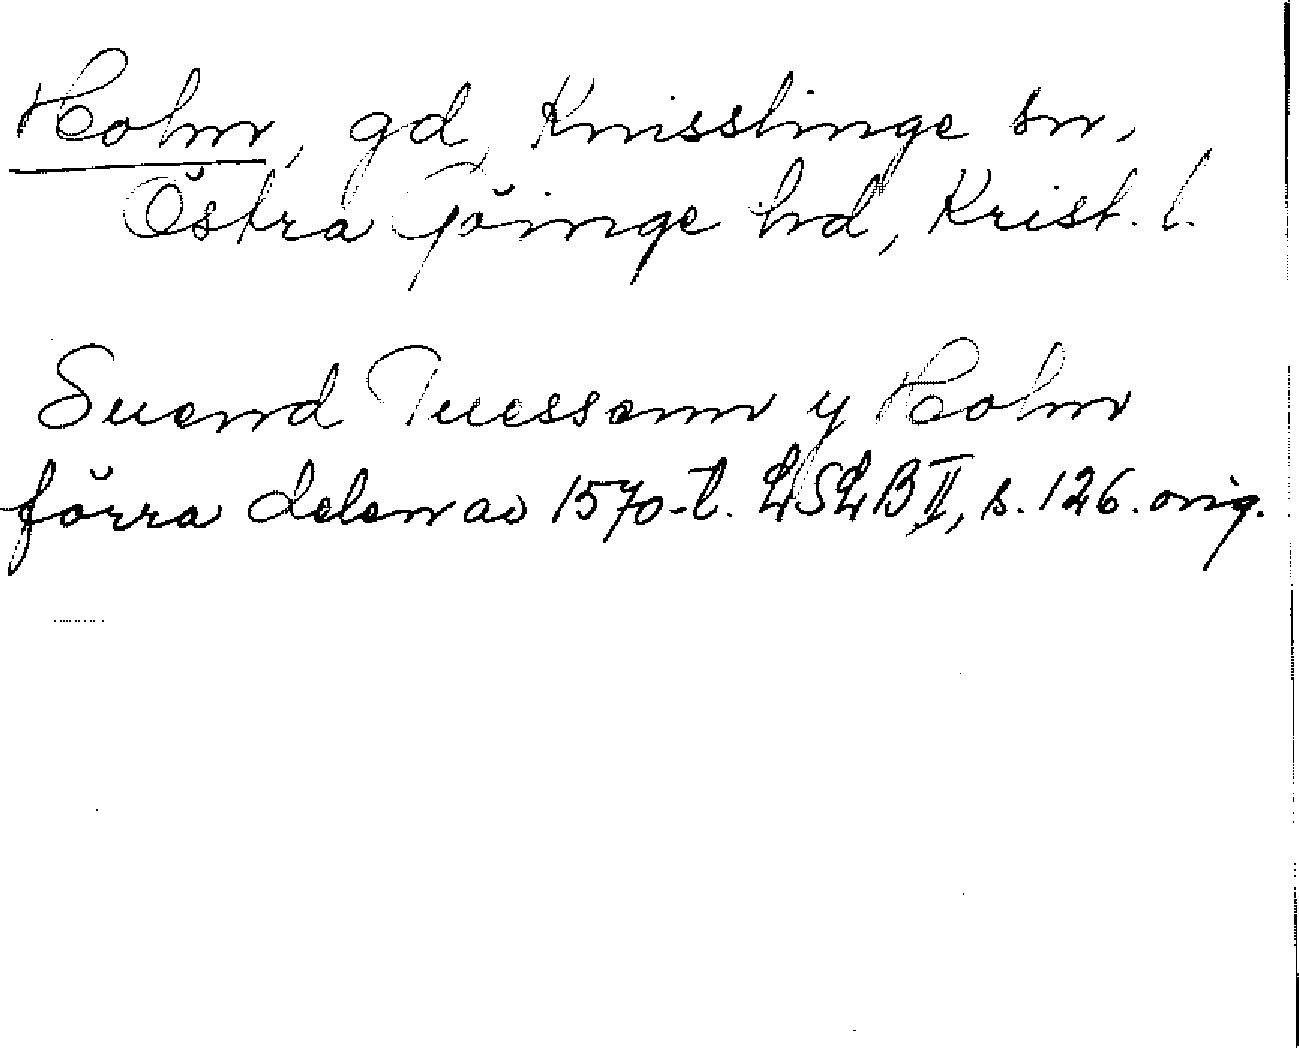 Holm, gd, Knisslinge sn,
Östra Göinge hd, Krist. l.
Suend Tuessenn y Holm
förra delen av 1570-t. LSLB II, s. 126. orig.